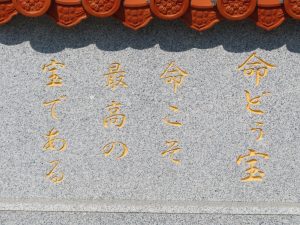 命どぅ宝
命こそ
最高の
宝である